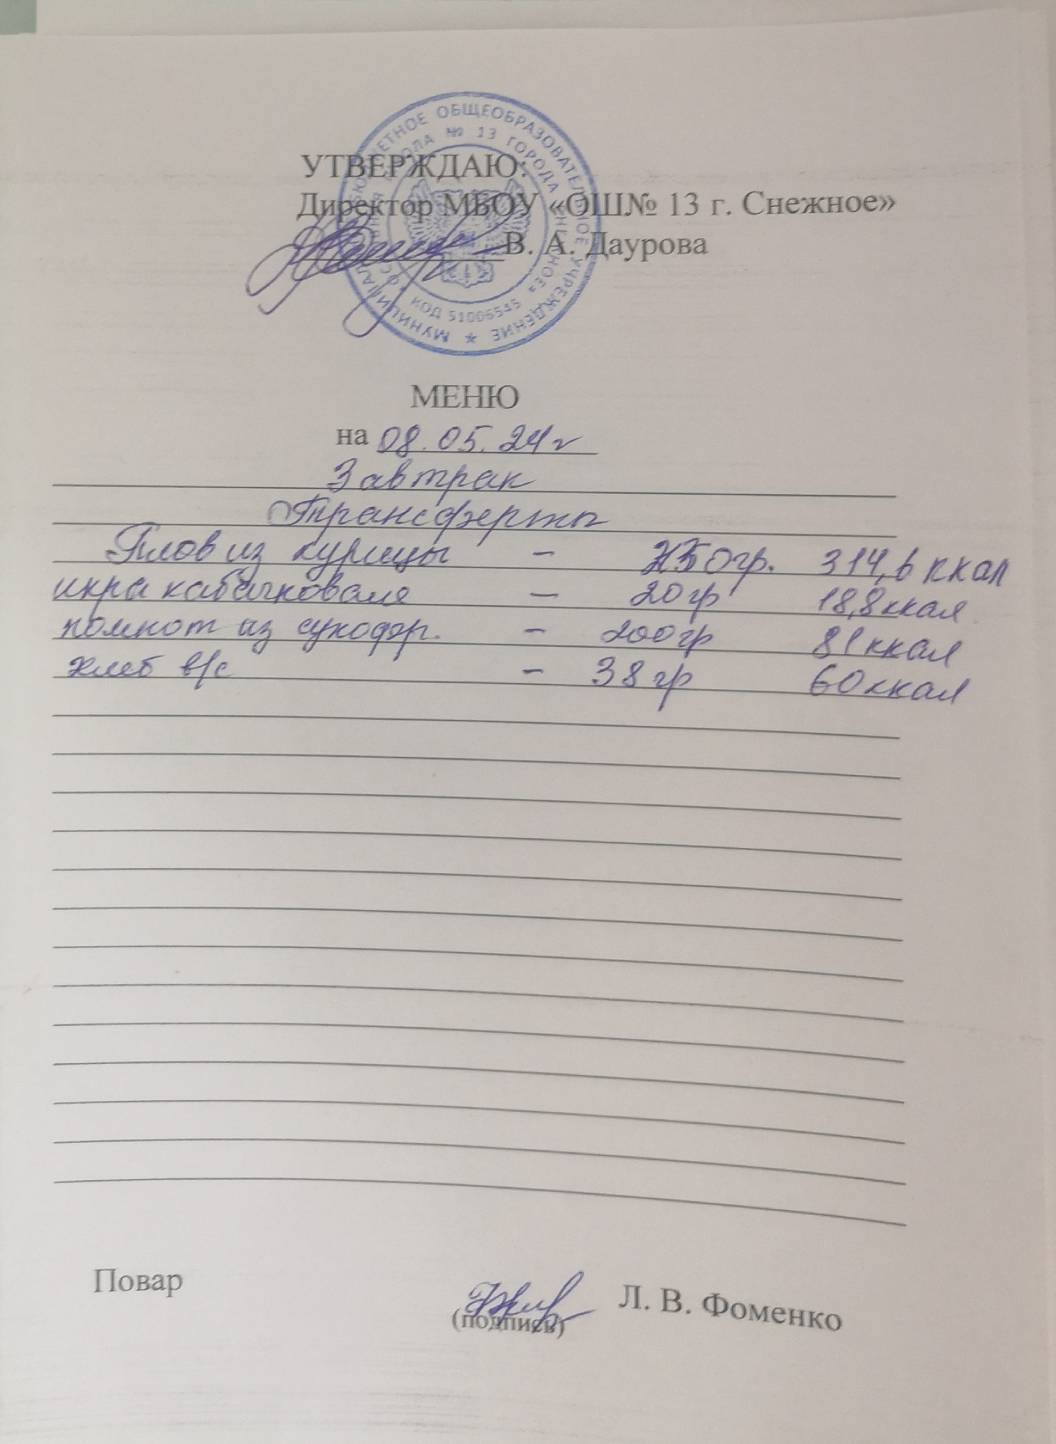 УТВЕРЖДАЮ:
Директор МБОУ «ОШ№ 13 г. Снежное»
В. А. Даурова
МУНИЦИПАЛЬНОЕ БЮДЖЕТНОЕ ОБЩЕОБРАЗОВАТЕЛЬНОЕ УЧРЕЖДЕНИЕ *
ШКОЛА № 13 ГОРОДА СНЕЖНОЕ»
КОД 51006545
МЕНЮ
на 08.05.24г
Завтрак
Трансферты
Плов из курицы - 250гр. 314,6 ккал
икра кабачковая - 20гр 18,8ккал
компот из сухофр. - 200гр 81ккал
хлеб в/с - 38гр 60ккал
Повар
(подпись)
Л. В. Фоменко